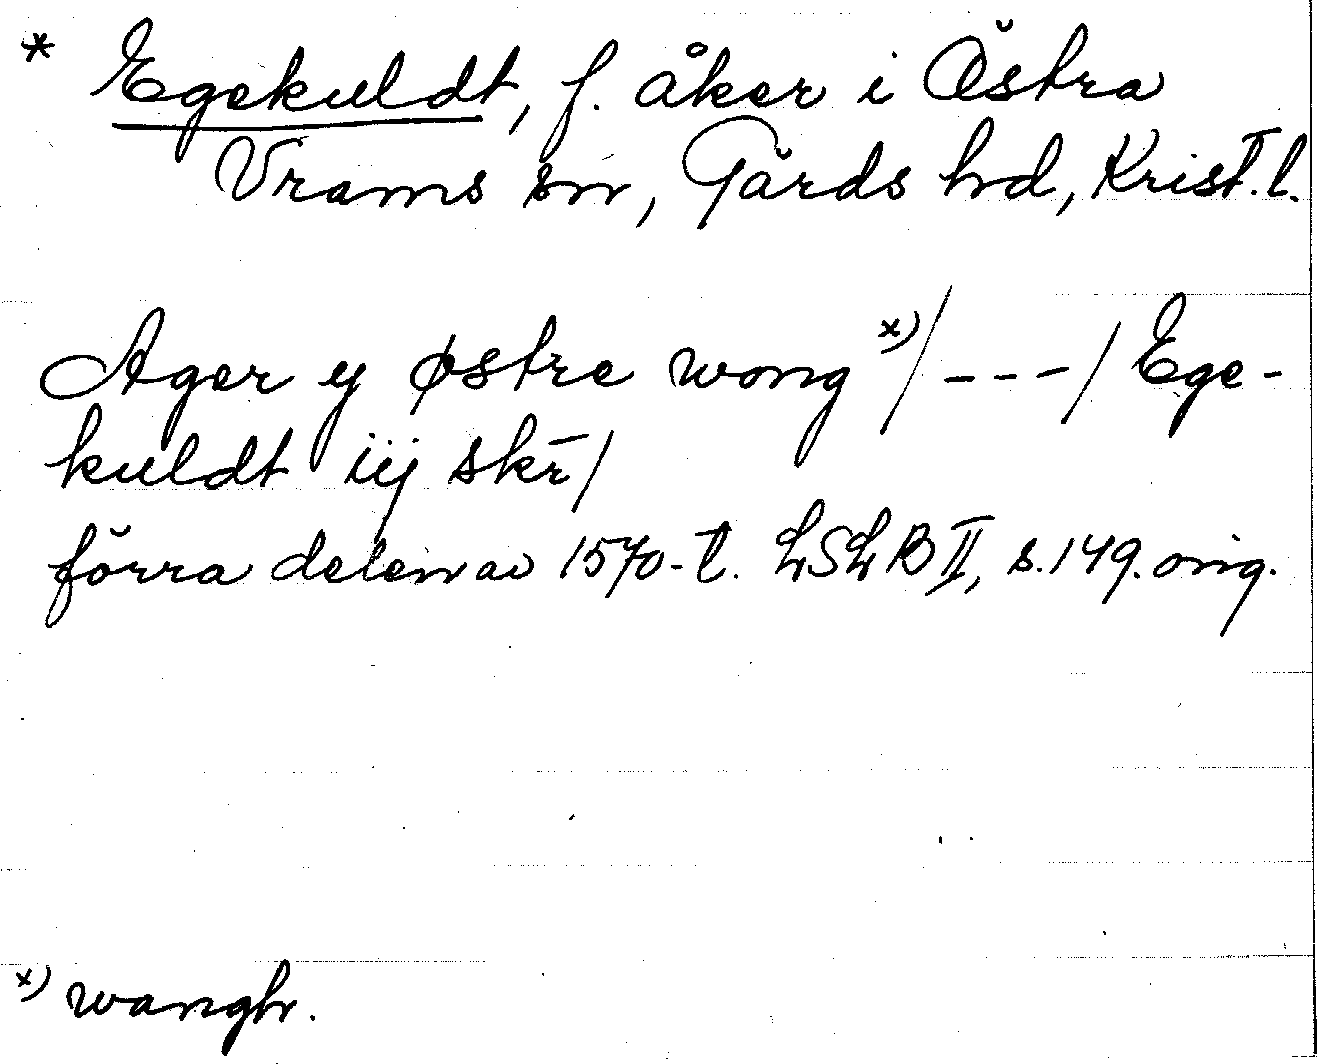 * Egekuldt, f. åker i Östra
Vrams sn, Gärds hd, Krist. l.
Ager y østre wong x) /---/ Ege-
kuldt iij skr̄/
förra delen av 1570-t. LSLB II, s. 149. orig.
x) wangh.